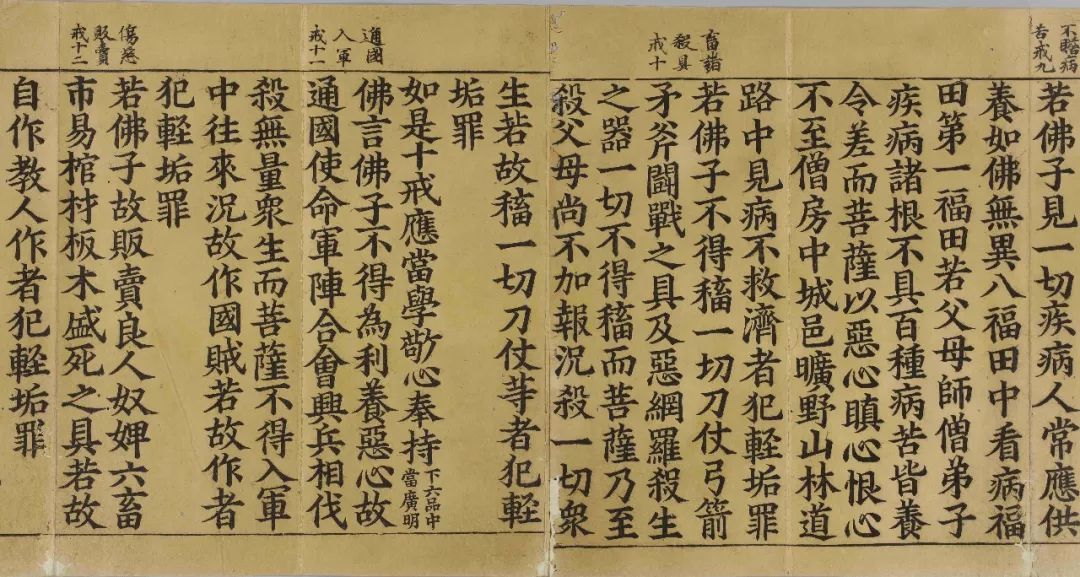 不瞻病
苦戒九
若佛子見一切疾病人常應供
養如佛無異八福田中看病福
田第一福田若父母師僧弟子
疾病諸根不具百種病苦皆養
令差而菩薩以惡心瞋心恨心
不至僧房中城邑曠野山林道
路中見病不救濟者犯輕垢罪
畜諸
殺具
戒十
若佛子不得稸一切刀仗弓箭
矛斧鬪戰之具及惡網羅殺生
之器一切不得稸而菩薩乃至
殺父母尚不加報況殺一切衆
生若故稸一切刀仗等者犯輕
垢罪
如是十戒應當學敬心奉持下六品中
當廣明
通國
入軍
戒十一
佛言佛子不得為利養惡心故
通國使命軍陣合會興兵相伐
殺無量衆生而菩薩不得入軍
中往來況故作國賊若故作者
犯輕垢罪
傷慈
販賣
戒十二
若佛子故販賣良人奴婢六畜
市易棺材板木盛死之具若故
自作教人作者犯輕垢罪